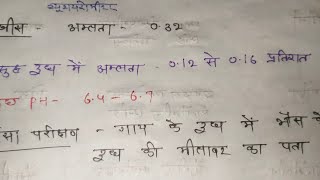 अम्लता - 0.32
दुध में अम्लता - 0.12 से 0.16 प्रतिशत
PH - 6.4 - 6.7
परीक्षण - गाय के दुध में भैंस के
दुध की मीलावट का पता